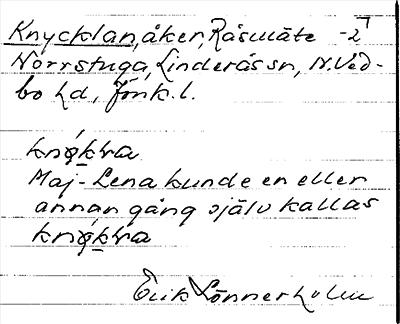 Knycklan, åker, Råsmåte -27
Norrstuga, Linderås sn, N. Ved-
bo hd, Jönk. l.
knøkra
Maj-Lena kunde en eller
annan gång själv kallas
knøkra
Erik Lönnerholm